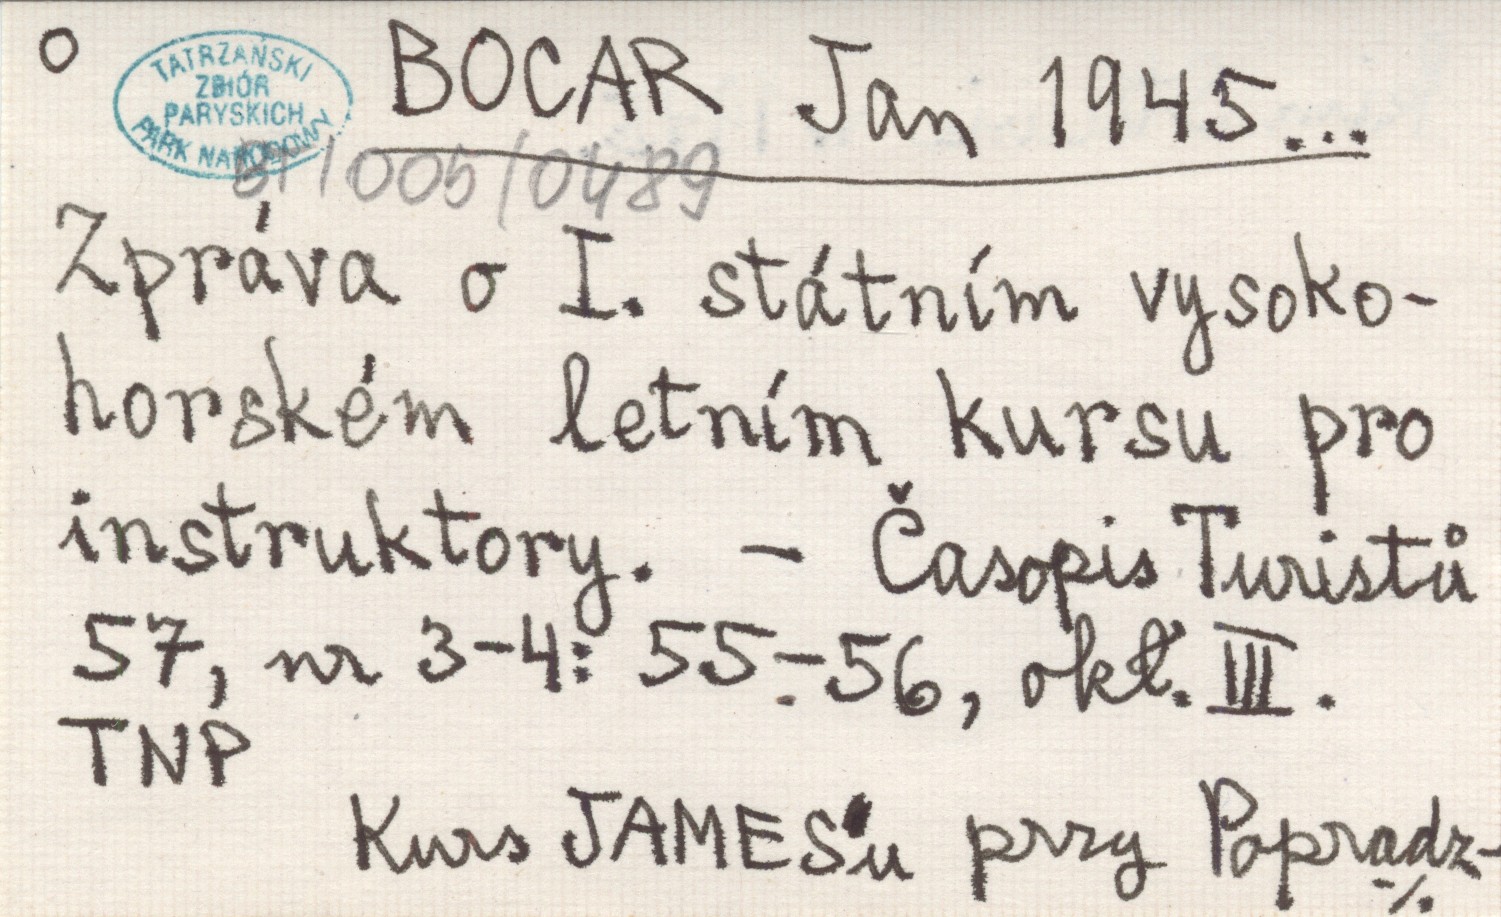 o
TATRZAŃSKI
ZBIÓR
PARYSKICH
PARK NARODOWY
BOCAR Jan 1945...
BT/005/0489
Zpráva o I. státním vysoko-
horském letním kursu pro
instruktory. - Časopis Turistů
57, nr 3-4: 55-56, okł. III.
TNP
Kurs JAMES'u przy Popradz-
-/.